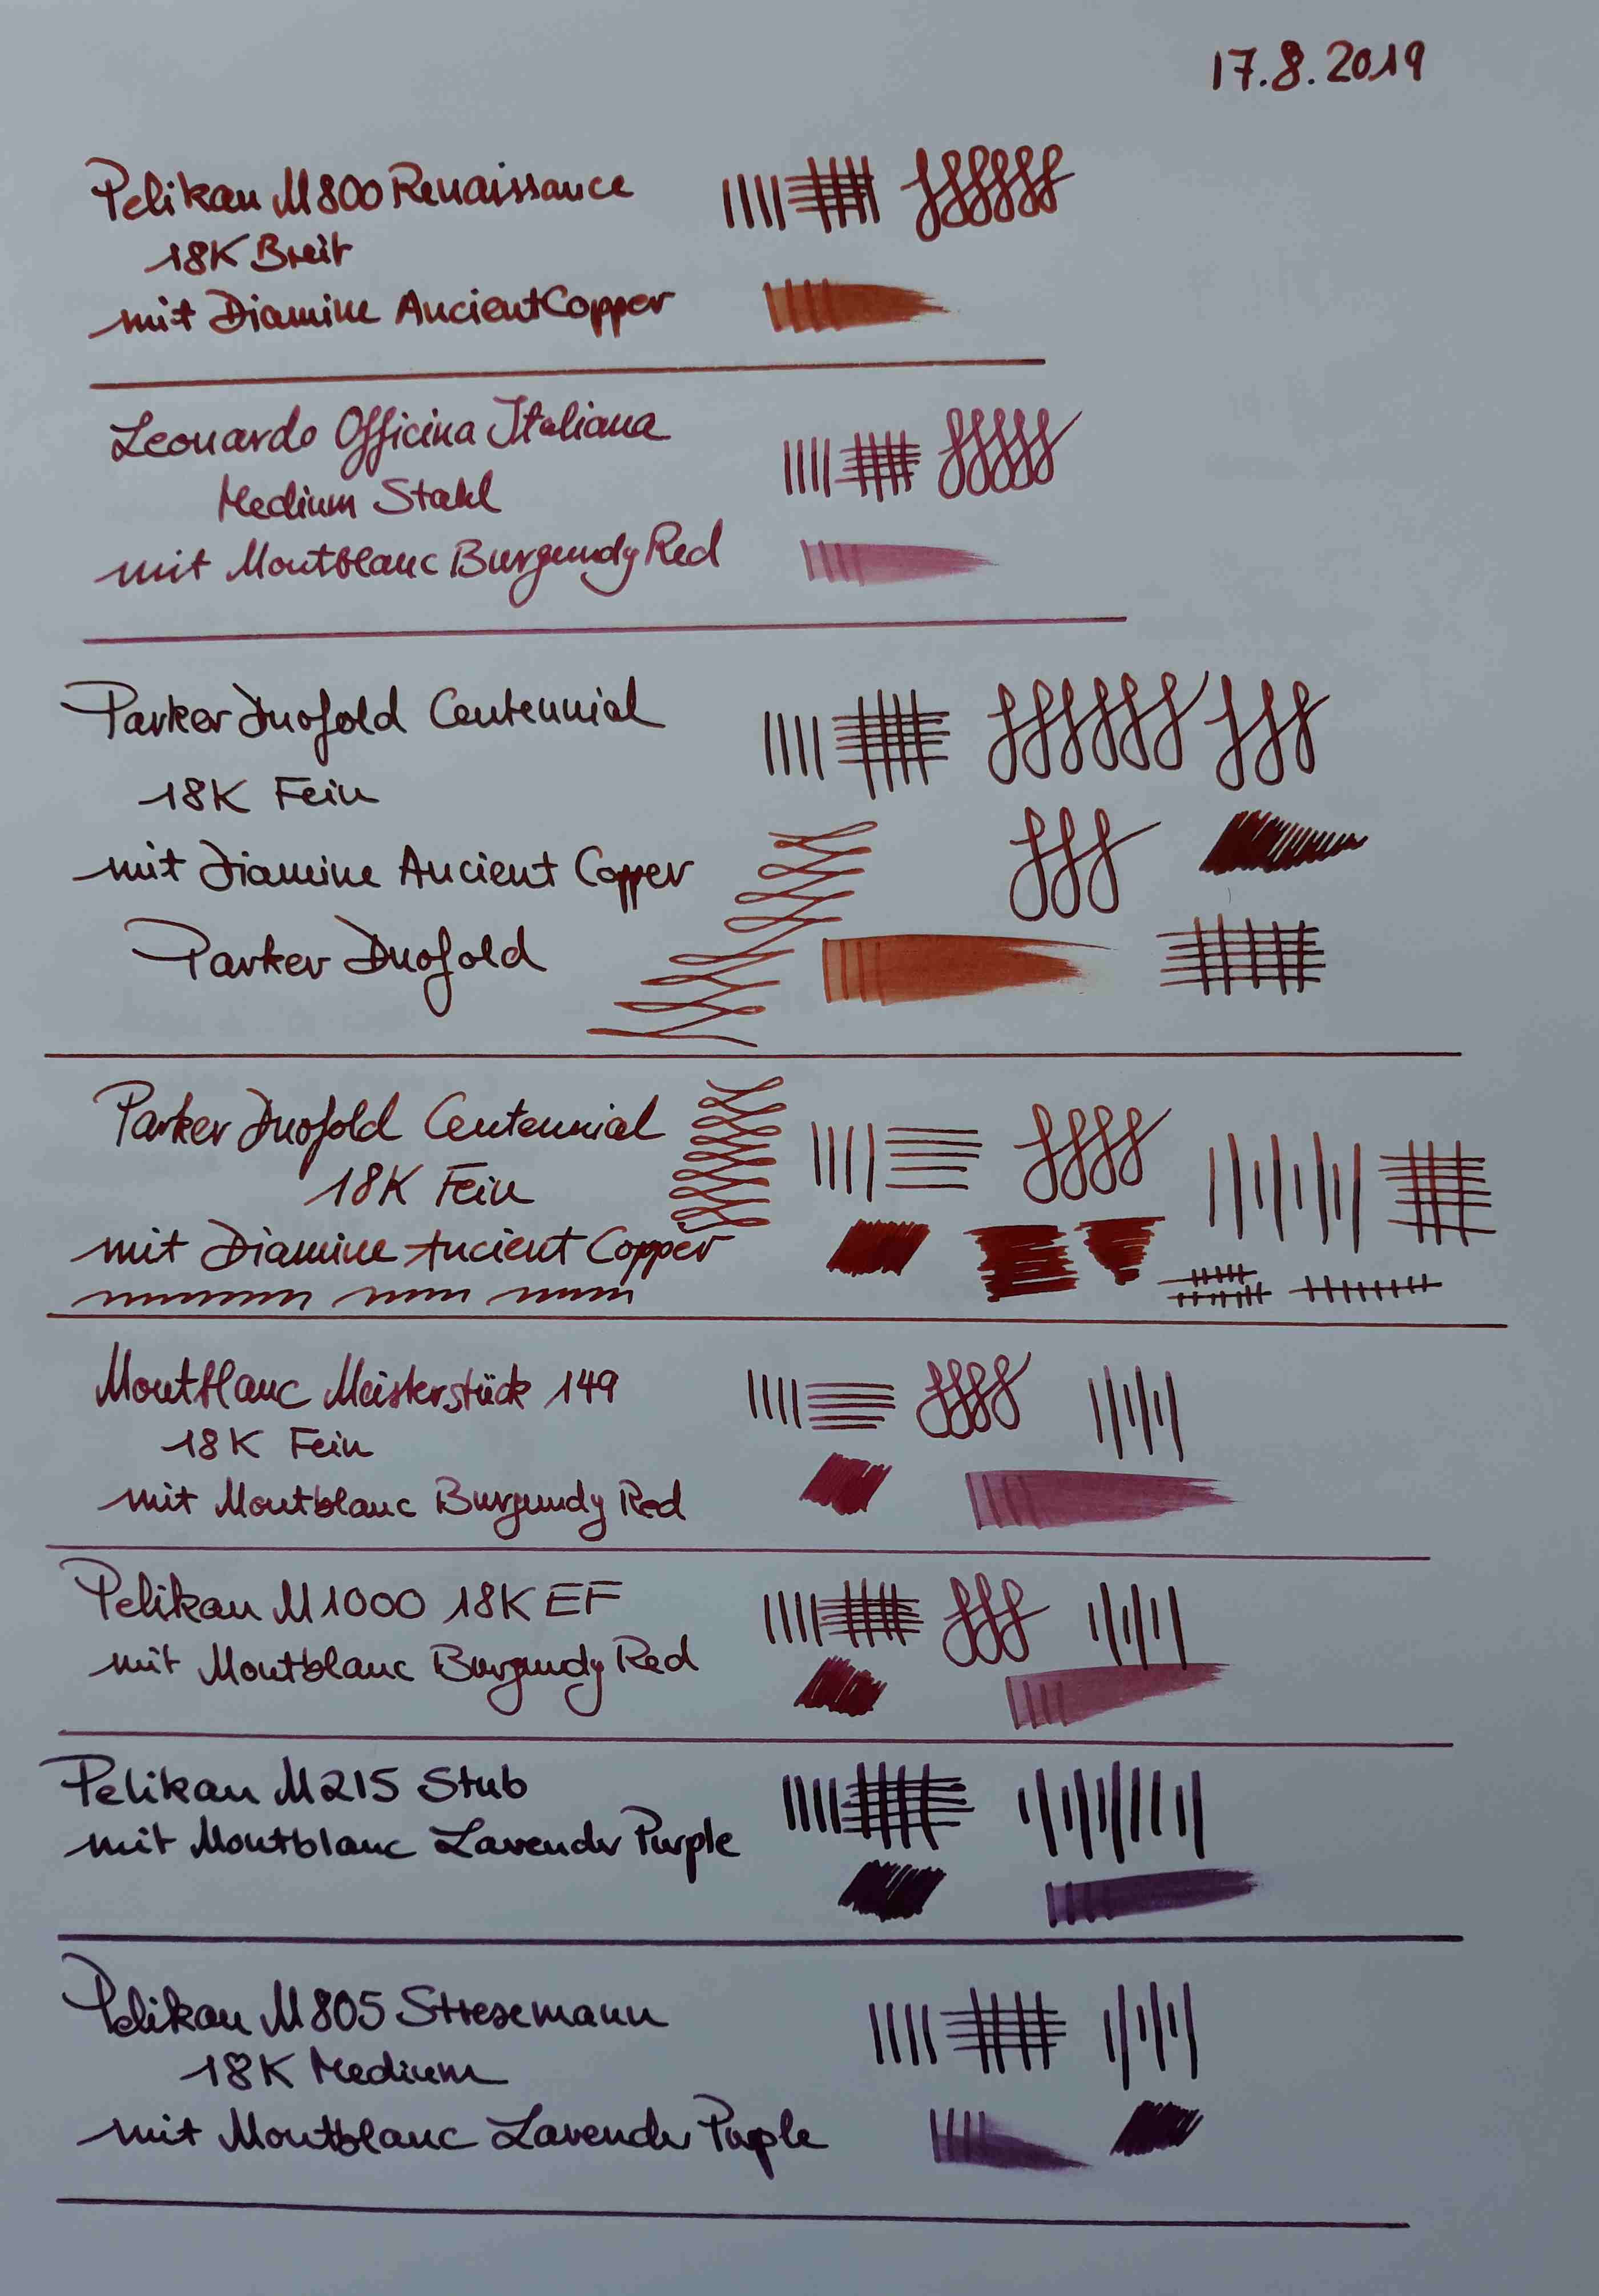 17.8.2019
Pelikan M800 Renaissance
18K Breit
mit Diamine Ancient Copper
Leonardo Officina Italiana
Medium Stahl
mit Montblanc Burgundy Red
Parker Duofold Centennial
18K Fein
mit Diamine Ancient Copper
Parker Duofold
Parker Duofold Centennial
18K Fein
mit Diamine Ancient Copper
Montblanc Meisterstück 149
18K Fein
mit Montblanc Burgundy Red
Pelikan M1000 18K EF
mit Montblanc Burgundy Red
Pelikan M215 Stub
mit Montblanc Lavender Purple
Pelikan M805 Stresemann
18K Medium
mit Montblanc Lavender Purple